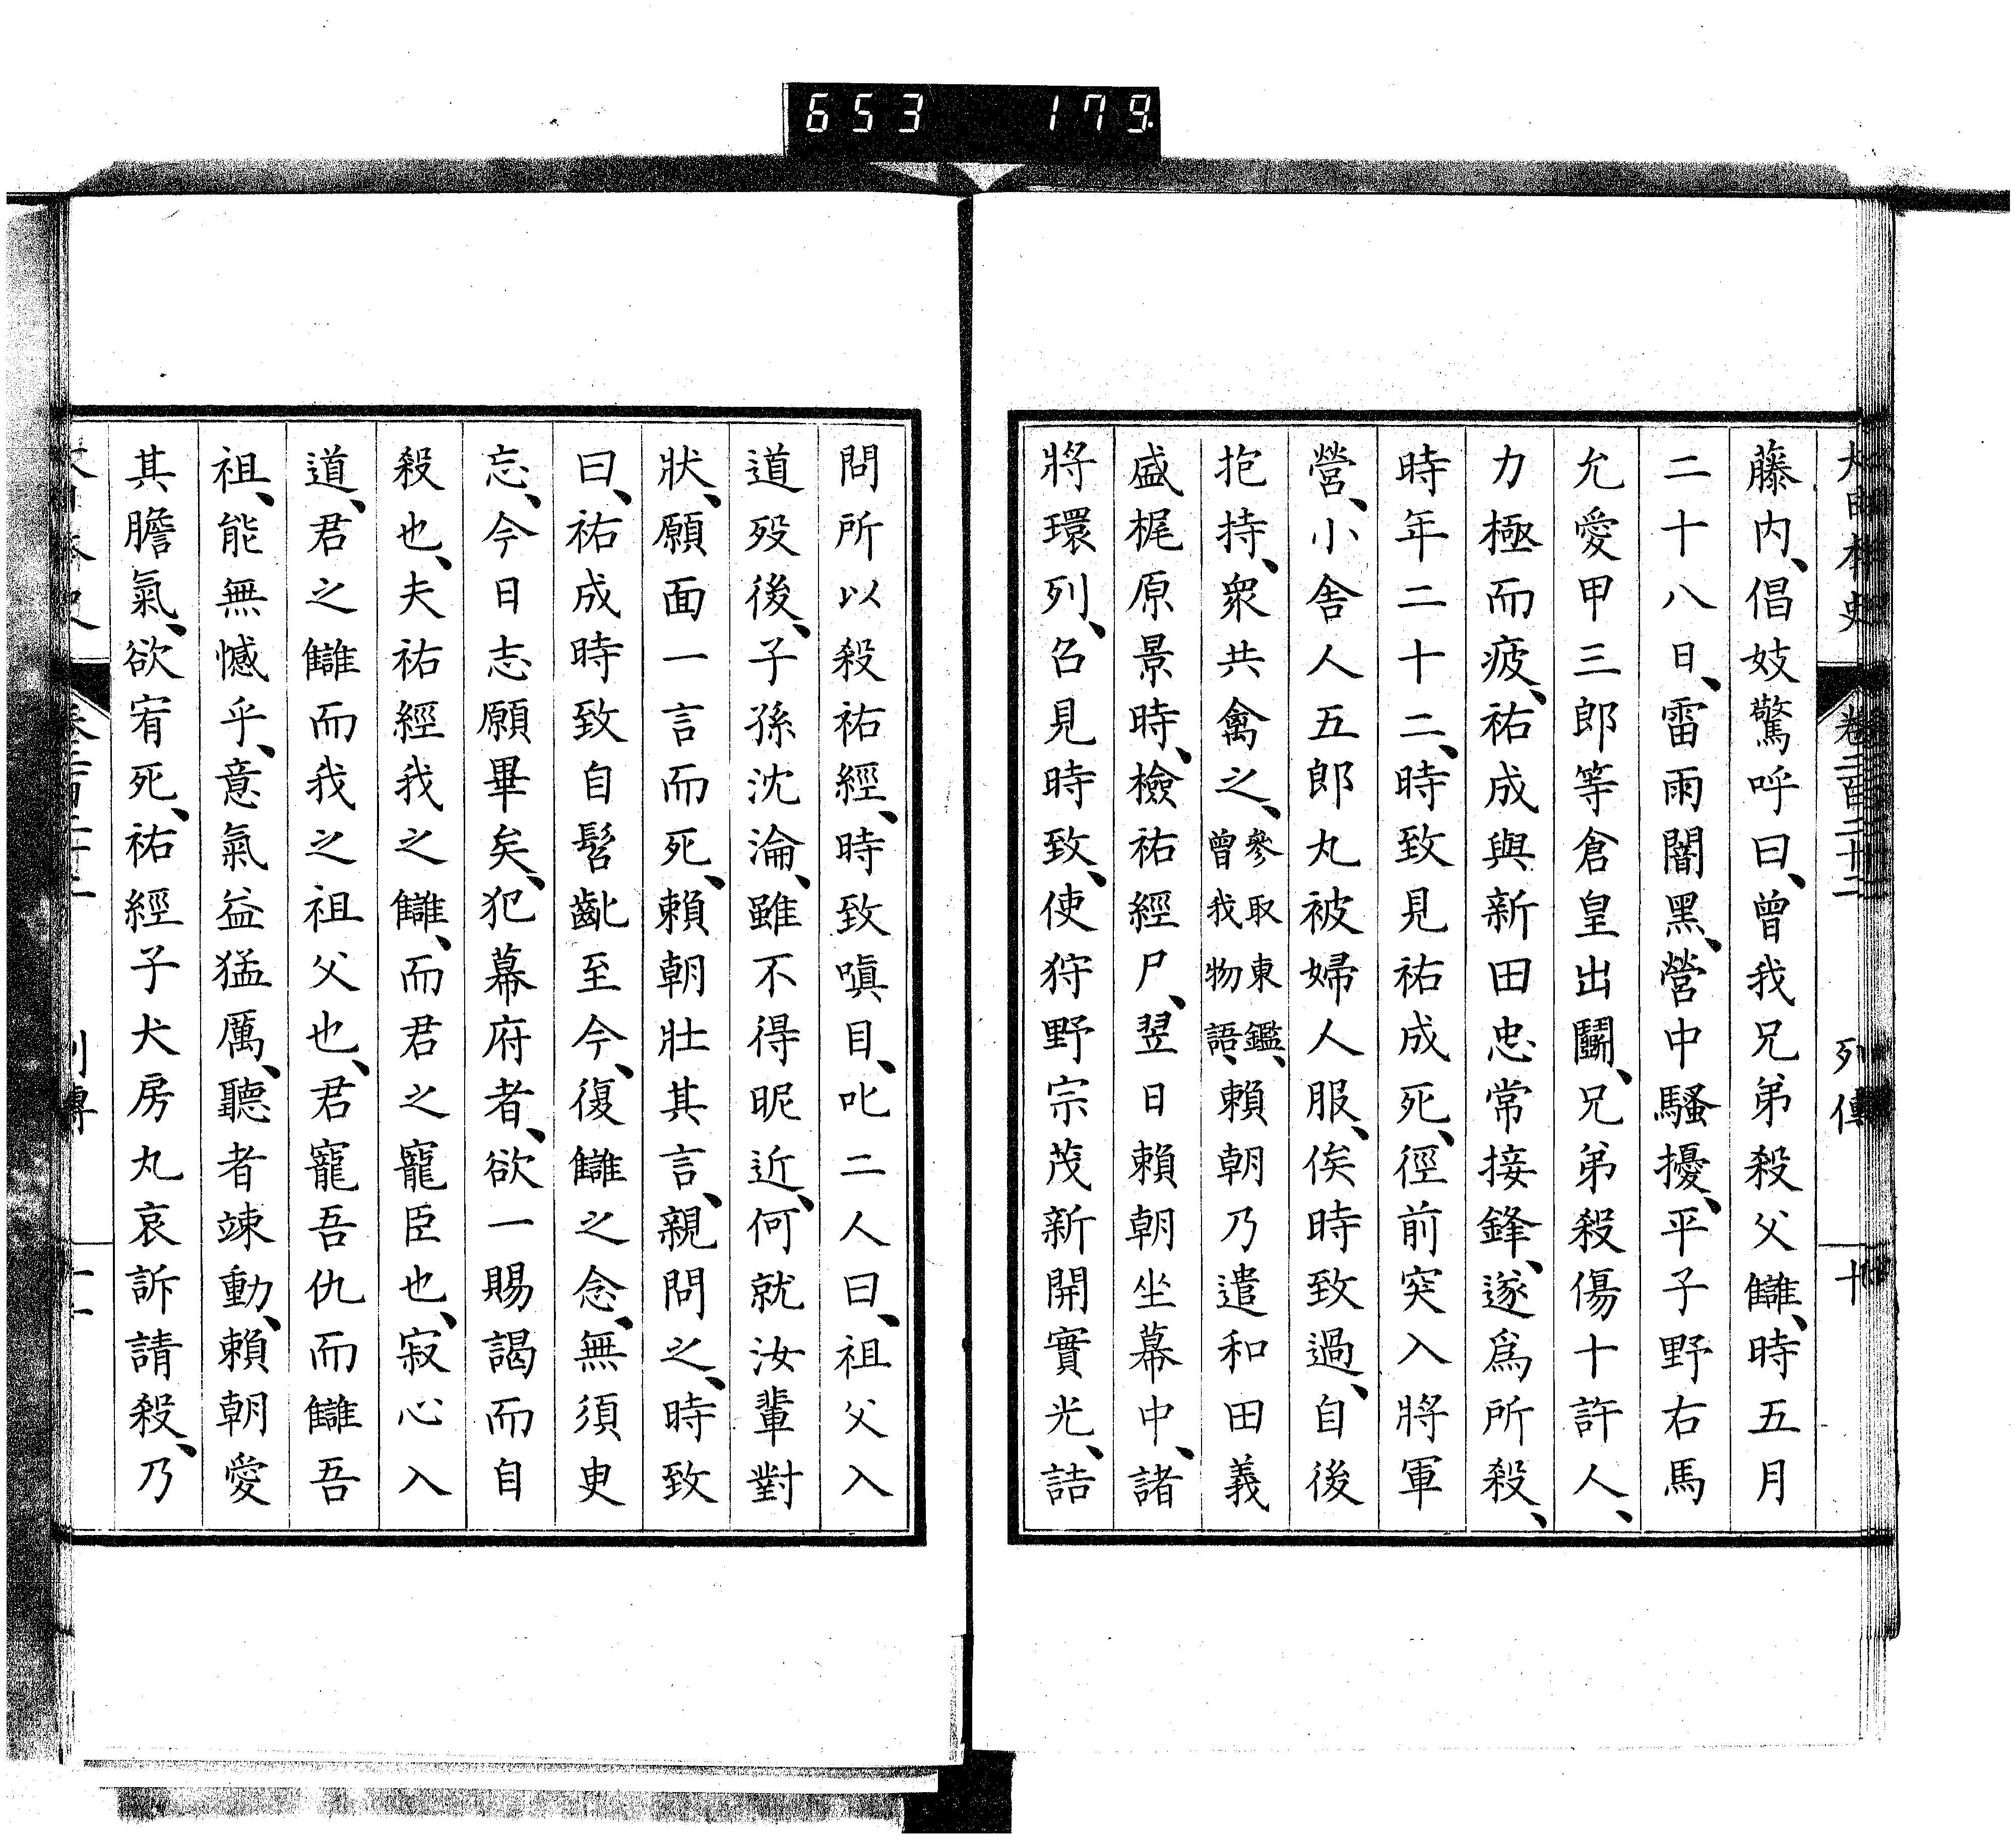 653 179
大日本史 卷二百二十二 列傳 十
藤内、倡妓驚呼曰、曾我兄弟殺父讎、時五月
二十八日、雷雨闇黑、營中騷擾、平子野右馬
允愛甲三郎等倉皇出鬬、兄弟殺傷十許人、
力極而疲、祐成與新田忠常接鋒、遂爲所殺、
時年二十二、時致見祐成死、徑前突入將軍
營、小舍人五郎丸被婦人服、俟時致過、自後
抱持、衆共禽之、參取東鑑、曾我物語、賴朝乃遣和田義
盛梶原景時、檢祐經尸、翌日賴朝坐幕中、諸
將環列、召見時致、使狩野宗茂新開實光、詰
問所以殺祐經、時致嗔目、叱二人曰、祖父入
道歿後、子孫沈淪、雖不得昵近、何就汝輩對
狀、願面一言而死、賴朝壯其言、親問之、時致
曰、祐成時致自髫齔至今、復讎之念、無須臾
忘、今日志願畢矣、犯幕府者、欲一賜謁而自
殺也、夫祐經我之讎、而君之寵臣也、寂心入
道、君之讎而我之祖父也、君寵吾仇而讎吾
祖、能無憾乎、意氣益猛厲、聽者竦動、賴朝愛
其膽氣、欲宥死、祐經子犬房丸哀訴請殺、乃